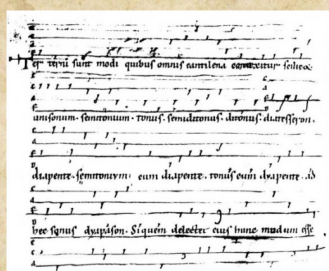 Ter terni sunt modi quibus omnis cantilena contexitur scilicet
unisonum · semitonium · tonus · semiditonus · ditonus · diatesseron ·
diapente · semitonium cum diapente · tonus cum diapente · id
hec sonus dyapason · Si quem delectet eius hunc modum esse